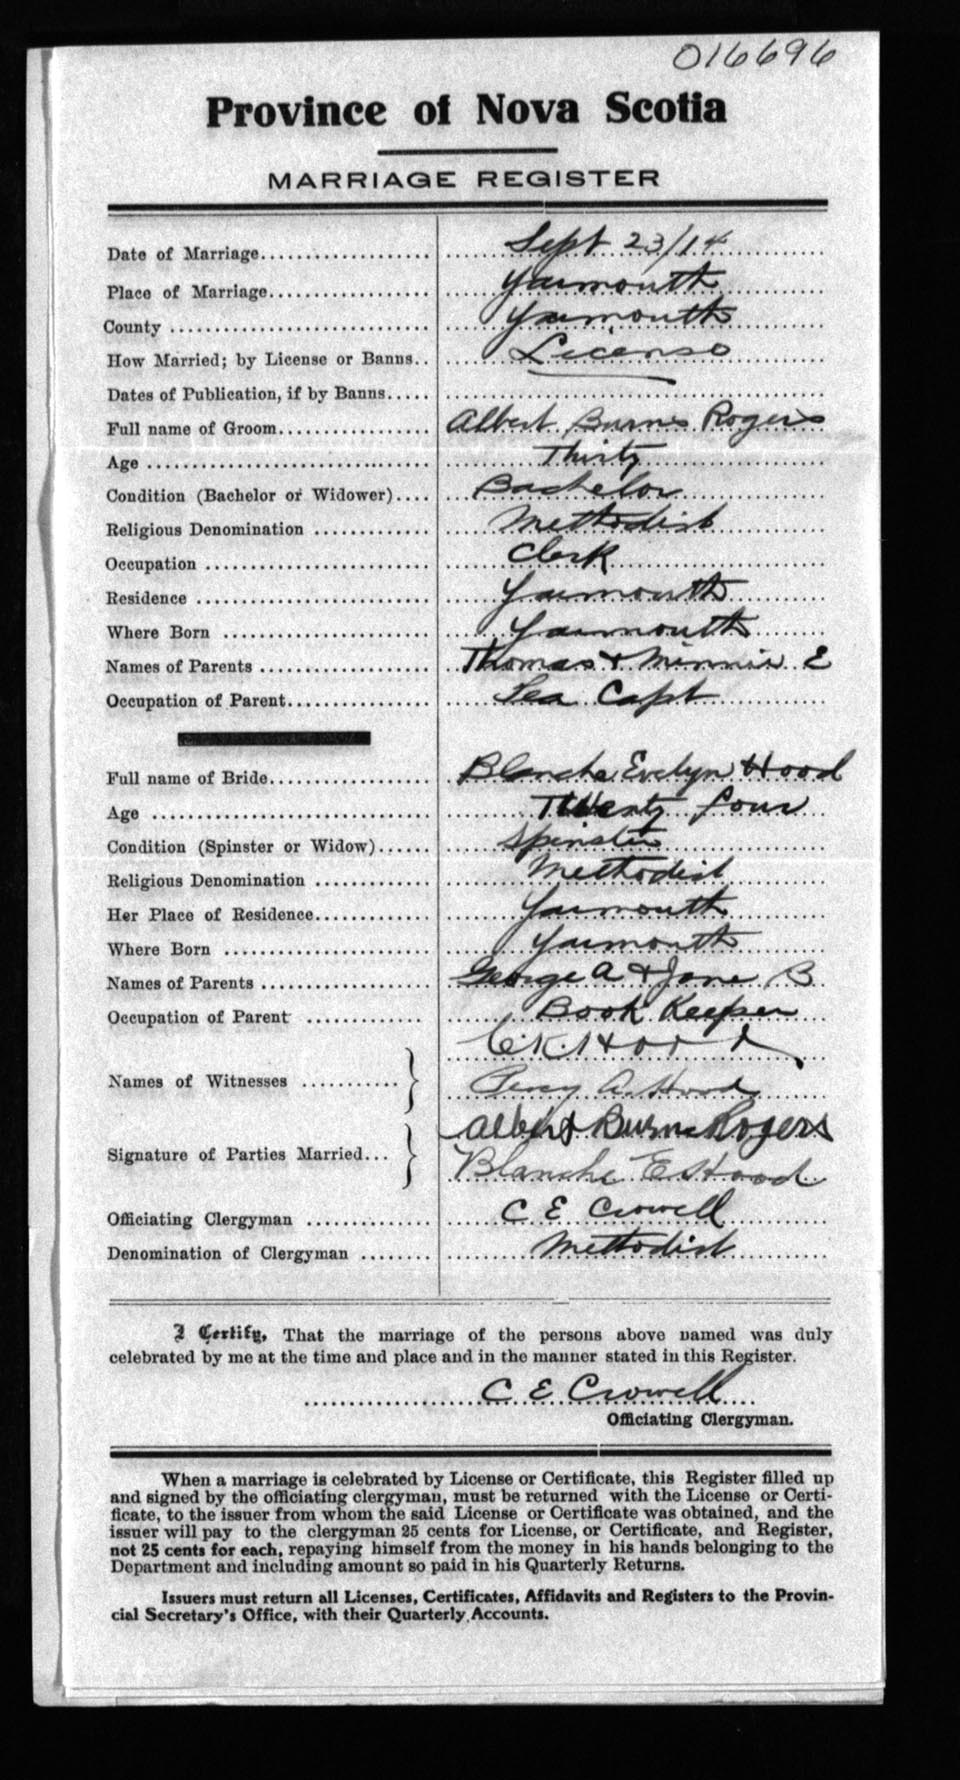 016696
Province of Nova Scotia
MARRIAGE REGISTER
Date of Marriage.................... Sept 23/14
Place of Marriage................... Yarmouth
County .............................. Yarmouth
How Married; by License or Banns.. License
Dates of Publication, if by Banns.....
Full name of Groom.................. Albert Burns Rogers
Age .................................. Thirty
Condition (Bachelor or Widower).... Bachelor
Religious Denomination ............. Methodist
Occupation .......................... Clerk
Residence ........................... Yarmouth
Where Born ......................... Yarmouth
Names of Parents ................... Thomas & Minnie E
Occupation of Parent................ Sea Capt
Full name of Bride.................. Blanche Evelyn Hood
Age .................................. Twenty four
Condition (Spinster or Widow)...... Spinster
Religious Denomination ............. Methodist
Her Place of Residence.............. Yarmouth
Where Born ......................... Yarmouth
Names of Parents ................... George A & Jane B
Occupation of Parent ............... Book Keeper
K. Hood
Names of Witnesses ........... } Percy A. Hood
Albert Burns Rogers
Signature of Parties Married... } Blanche E Hood
Officiating Clergyman ............... C E Crowell
Denomination of Clergyman ........ Methodist
I Certify, That the marriage of the persons above named was duly
celebrated by me at the time and place and in the manner stated in this Register.
C E Crowell
Officiating Clergyman.
When a marriage is celebrated by License or Certificate, this Register filled up
and signed by the officiating clergyman, must be returned with the License or Certi-
ficate, to the issuer from whom the said License or Certificate was obtained, and the
issuer will pay to the clergyman 25 cents for License, or Certificate, and Register,
not 25 cents for each, repaying himself from the money in his hands belonging to the
Department and including amount so paid in his Quarterly Returns.
Issuers must return all Licenses, Certificates, Affidavits and Registers to the Provin-
cial Secretary's Office, with their Quarterly Accounts.